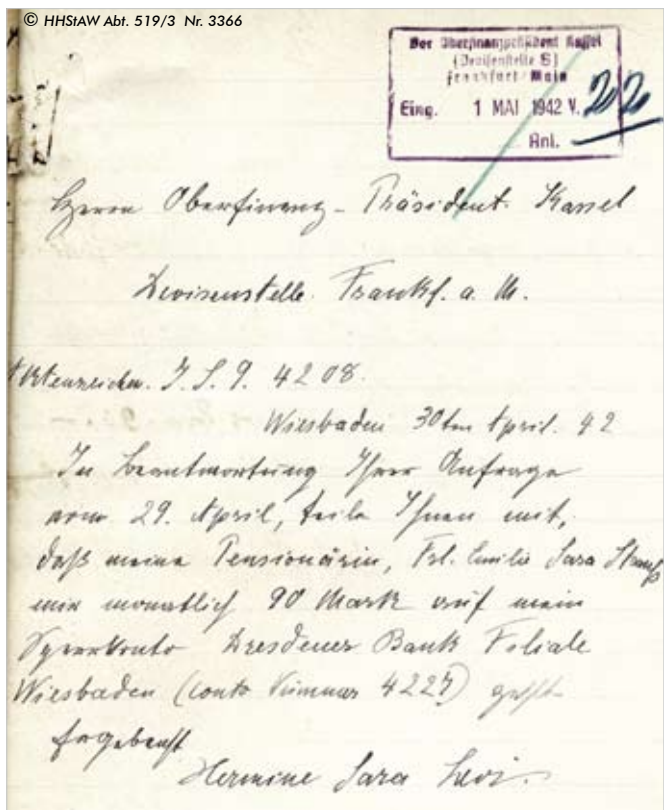 © HHStAW Abt. 519/3 Nr. 3366
Der Oberfinanzpräsident Kassel
(Devisenstelle S)
Frankfurt/Main
Eing. 1 MAI 1942 V.
Anl.
Herrn Oberfinanz-Präsident. Kassel
Devisenstelle. Frankf. a. M.
Aktenzeichen. J. S. 9. 4208.
Wiesbaden 30ten April. 42
In Beantwortung Ihrer Anfrage
vom 29. April, teile Ihnen mit,
daß meine Pensionärin, Frl. Emilie Sara Strauß
mir monatlich 90 Mark auf mein
Sperrkonto Dresdener Bank Filiale
Wiesbaden (conto Nummer 4227)
Ergebenst
Hermine Sara Levi.